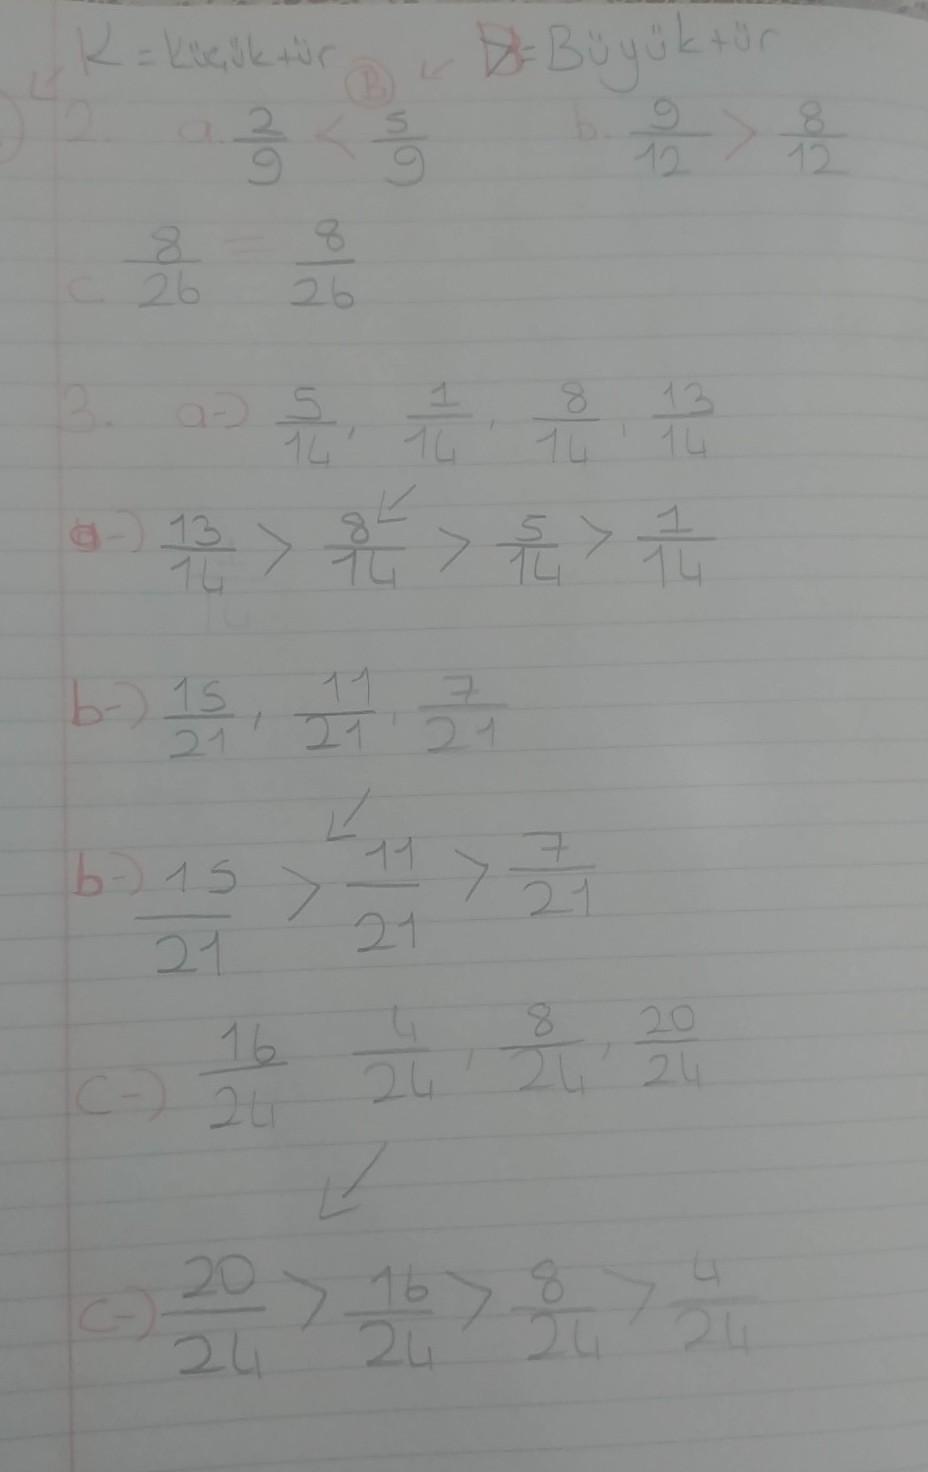 K = Küçüktür B = Büyüktür
2. a. 2/9 < 5/9 b. 9/12 > 8/12
c. 8/26 = 8/26
3. a-) 5/14, 1/14, 8/14, 13/14
a-) 13/14 > 8/14 > 5/14 > 1/14
b-) 15/21, 11/21, 7/21
b-) 15/21 > 11/21 > 7/21
c-) 16/24 4/24, 8/24, 20/24
c-) 20/24 > 16/24 > 8/24 > 4/24